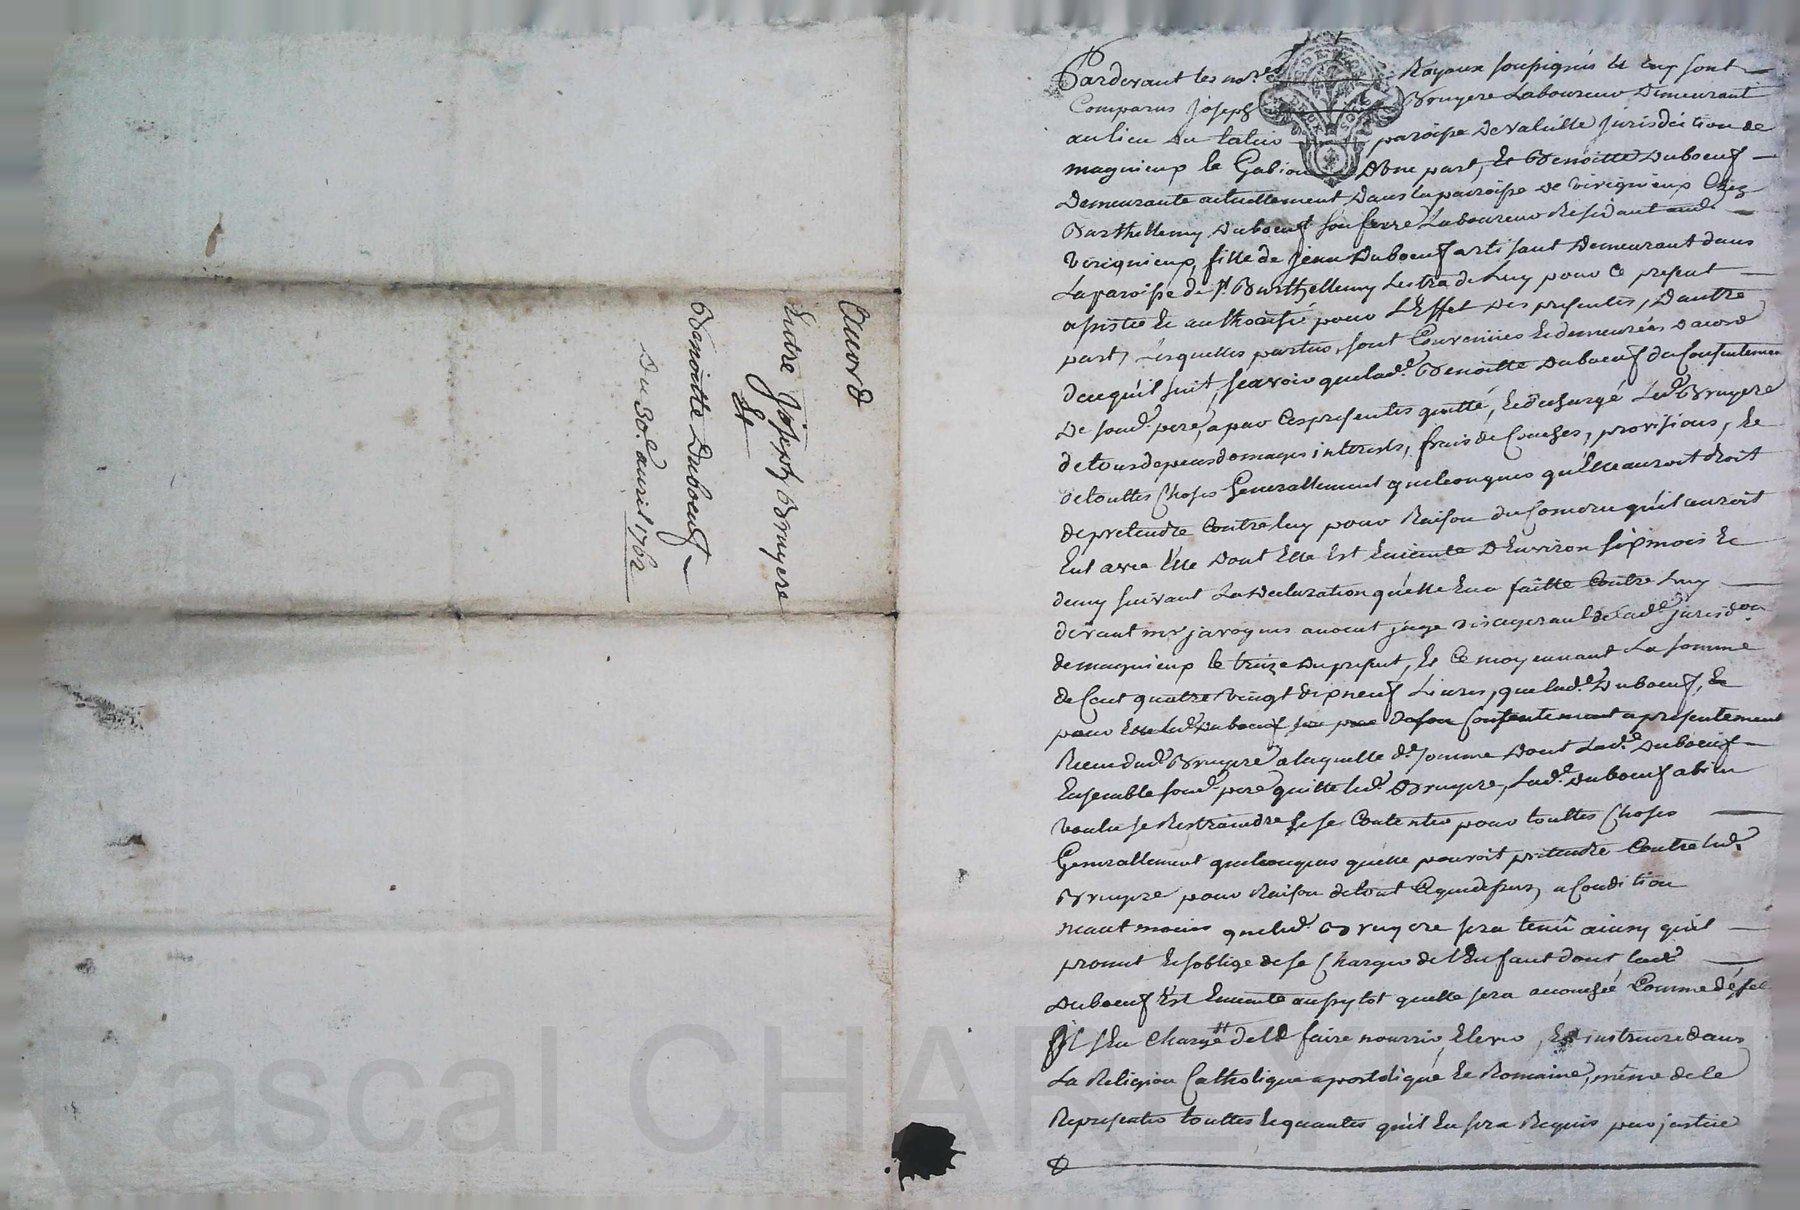 Accord
Entre Joseph Bruyere
Et
Benoitte Duboeuf
Du 30.e auril 1762
Pardevant les no.res Royaux soussignés et luy sont
Comparus Joseph Bruyere Laboureur Demeurant
au lieu Du paroisse De valeille Jurisdiction de
magnieux le Gabion D'une part, Et Benoitte Duboeuf
Demeurante actuellement Dans la paroisse de virignieux Chez
Barthellemy Duboeuf son frere Laboureur Residant aud.
virignieux, fille de Jean Duboeuf artisant Demeurant dans
La paroisse de s.t Barthellemy Lestra de Luy pour Ce present
assistée Et authorisée pour L'Effet Des presentes, D'autre
part, Lesquelles parties, sont Convenües Et demeurées D'acord
de ce qu'il suit, scavoir que lad.e Benoitte Duboeuf du Consentemen
De soud. pere, a par Ces presentes quitté, Et dechargé Led. Bruyere
de tous depens domages interests, frais de Couches, provisions, Et
de touttes Choses Generallement quelconques qu'Elle auroit droit
de pretendre Contre luy pour Raison du Comerce qu'il auroit
Eut avec Elle Dont Elle Est Enceinte D'Environ six mois Et
demy suivant La Declaration qu'elle En a faitte Contre Luy
devant mr javogues avocat juge de lad.e jurisd.on
de magnieux le treize Du present, Et Ce moyennant La somme
de Cent quatre vingt dix neuf Livres, que lad.e Duboeuf, Et
pour Elle led. Duboeuf son pere De son Consentement a presentement
Receu dud. Bruyere a laquelle d.e somme Dont Lad.e Duboeuf
Ensemble soud. pere quitte led. Bruyere, Lad.e Duboeuf a bien
voulu se Restraindre Et se Contenter pour touttes Choses
Generallement quelconques qu'elle pouvoit pretendre Contre led.
Bruyere pour Raison de tout Ce que dessus, a Condition
neant moins que led. Bruyere sera tenû ainsy qu'il
promet Et s'oblige de se Charger de l'Enfant dont lad.
Duboeuf Est Enceinte aussytot qu'elle sera accouchée Comme dés
Il s'En Charge de le faire nourrir, Elever, Et instruire dans
La Religion Catholique apostolique Et Romaine, même de le
Representer touttes Et quantes qu'il En sera Requis par justice